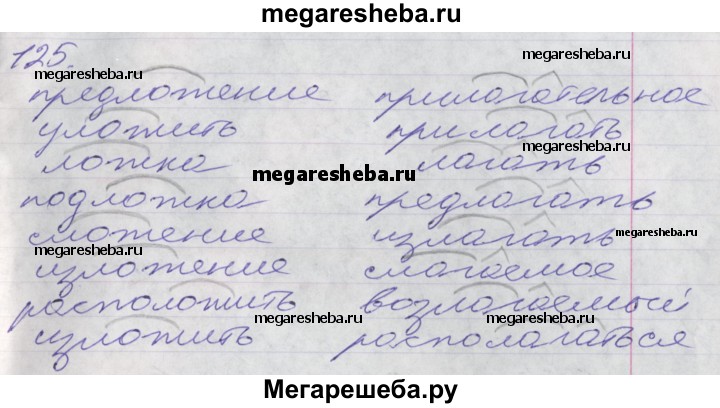 megaresheba.ru
125.
megaresheba.ru
megaresheba.ru
предложение прилагательное
уложить прилагать
ложка лагать
megaresheba.ru
подложка предлагать
сложение излагать
megaresheba.ru
megaresheba.ru
изложение слагаемое
расположить возлагаемый
megaresheba.ru
megaresheba.ru
изложить располагаться
Мегарешеба.ру